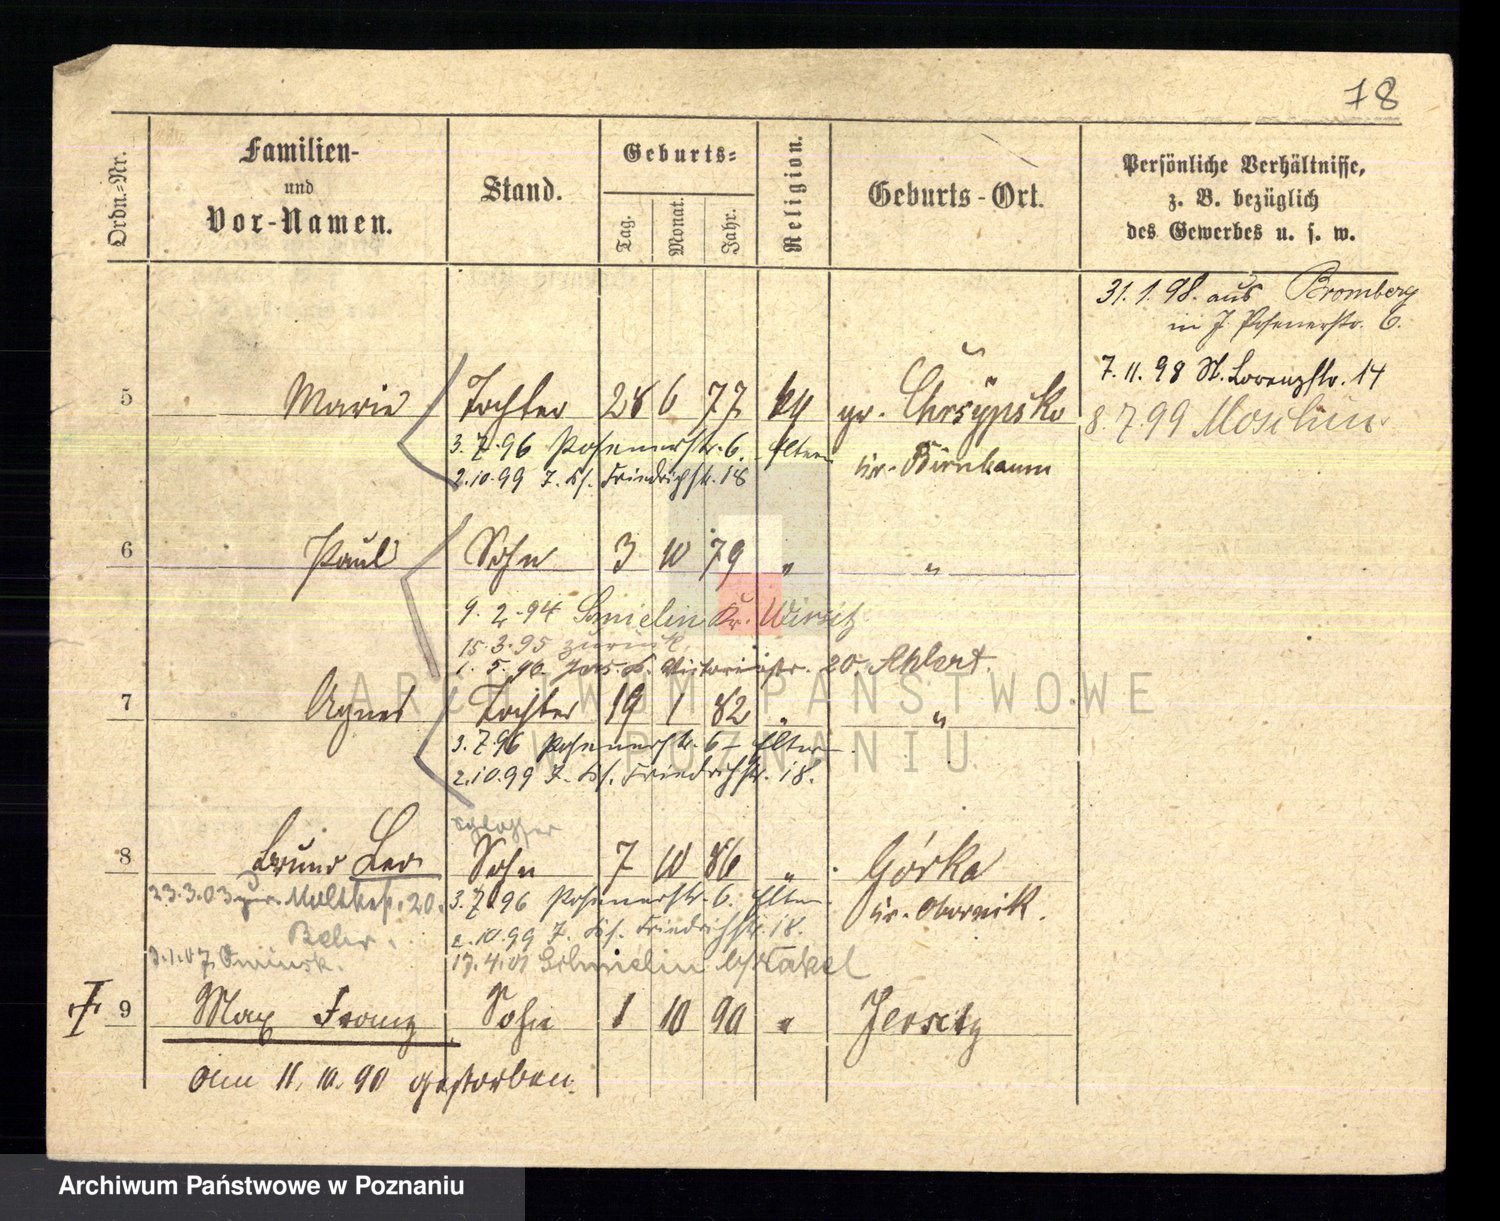 78
Ordn.-Nr.
Familien-
und
Vor-Namen.
Stand.
Geburts-
Tag.
Monat.
Jahr.
Religion.
Geburts-Ort.
Persönliche Verhältnisse,
z. B. bezüglich
des Gewerbes u. s. w.
31. 1. 98. aus Bromberg
in J. Posenerstr. 6.
7. 11. 98 St. Lorenzstr. 14
8. 7. 99 Moschin
5 Marie Tochter 28 6 77 gr. Chrsypsko
3. 7. 96 Posenerstr. 6. Eltern
Kr. Birnbaum
2. 10. 99 J. Ks. Friedrichstr. 18
6 Paul Sohn 3 10 79 " "
9. 2. 94 Kr. Wirsitz
15. 3. 95 zurück
Victoriastr. 20. Ahlert.
7 Agnes Tochter 19 1 82 " "
3. 7. 96 Posenerstr. 6 - Eltern.
2. 10. 99 J. Ks. Friedrichstr. 18.
ARCHIWUM PAŃSTWOWE
W POZNANIU
Schlosser
8 Bruno Leo Sohn 7 10 86 " Górka
23. 3. 03 20.
3. 7. 96 Posenerstr. 6. Eltern
Kr. Obornik.
2. 10. 99 J. Ks. Friedrichstr. 18.
3. 1. 07
9 Max Franz Sohn 1 10 90 " Jersitz
am 11. 10. 90 gestorben.
Archiwum Państwowe w Poznaniu